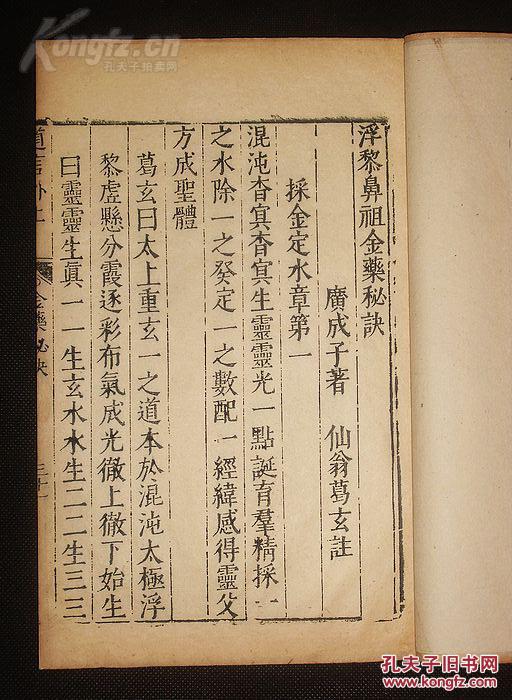 浮黎鼻祖金藥秘訣
廣成子著　仙翁葛玄註
採金定水章第一
混沌杳冥杳冥生靈靈光一點誕育羣精採一
之水除一之癸定一之數配一經緯感得靈父
方成聖體
葛玄曰太上重玄一之道本於混沌太極浮
黎虛懸分霞逐彩布氣成光徹上徹下始生
曰靈靈生眞一一生玄水水生二二生三三
道言外
金藥秘訣
Kongfz.cn
孔夫子拍卖网
孔夫子旧书网
KONGFZ.COM